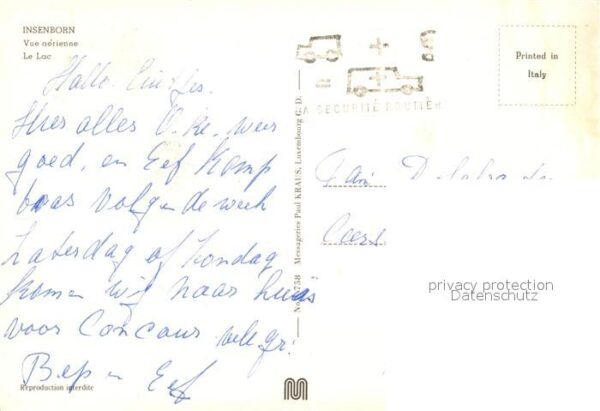 INSENBORN
Vue aérienne
Le Lac
Hallo
Hier alles O.ke. weer
goed, en Eef Komp
baas volgende week
Zaterdag of Zondag
komen wij naar huis
voor Concour vele gr.
Bep en Eef
Reproduction interdite
Messageries Paul KRAUS, Luxembourg G. D.
LA SECURITÉ ROUTIÈR
Printed in
Italy
Fam
privacy protection
Datenschutz